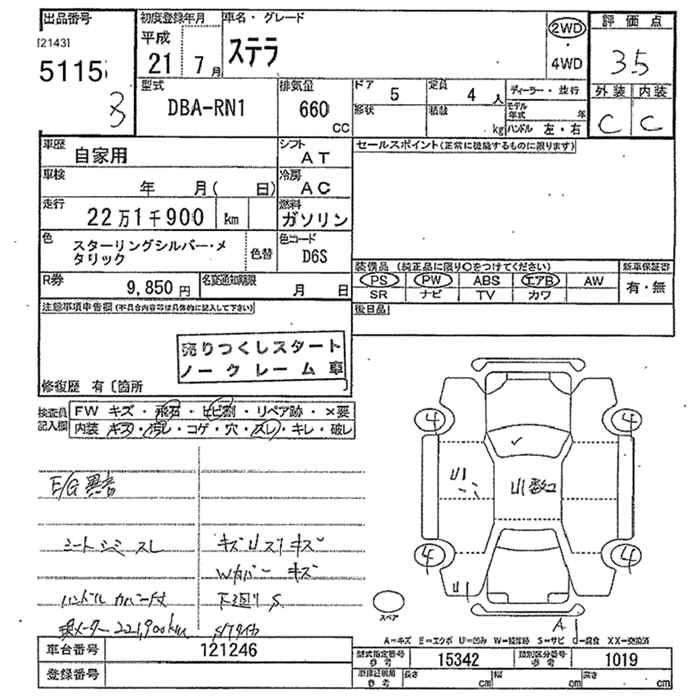 出品番号 初度登録年月 車名・グレード 評価点
[2143] 平成 ステラ 2WD
5115 21 7月 ・ 3.5
8 4WD
型式 排気量 ドア 5 定員 4人 ディーラー・並行 外装 内装
DBA-RN1 660 CC 形状 積載 kg モデル年式 年 C C
ハンドル 左・右
車歴 自家用 シフト AT セールスポイント(正常に機能するものに限ります)
車検 年 月( 日) 冷房 AC
走行 22万1千900 km 燃料 ガソリン
色 スターリングシルバー・メ 色替 色コード D6S
タリック
装備品 (純正品に限り○をつけてください) 新車保証書
R券 9,850円 名変通知期限 月 日 PS PW ABS エアB AW 有・無
SR ナビ TV カワ
注意事項申告欄(不具合内容等は具体的に記入して下さい) 後日品
売りつくしスタート
ノークレーム車
修復歴 有〔箇所
検査員 FW キズ・飛石・ヒビ割・リペア跡・×要
記入欄 内装 キズ・汚レ・コゲ・穴・スレ・キレ・破レ
4 4
E/G異音 U
シートシミ スレ キズ U スリキズ
Wカバー キズ 4 4
ハンドルカバー付 下廻りS U
現メーター221,900km スペア A
A=キズ E=エクボ U=凹み W=補修跡 S=サビ C=腐食 XX=交換済
車台番号 121246 型式指定番号 参考 15342 類別区分番号 参考 1019
登録番号 参考 長さ cm 幅 cm 高さ cm